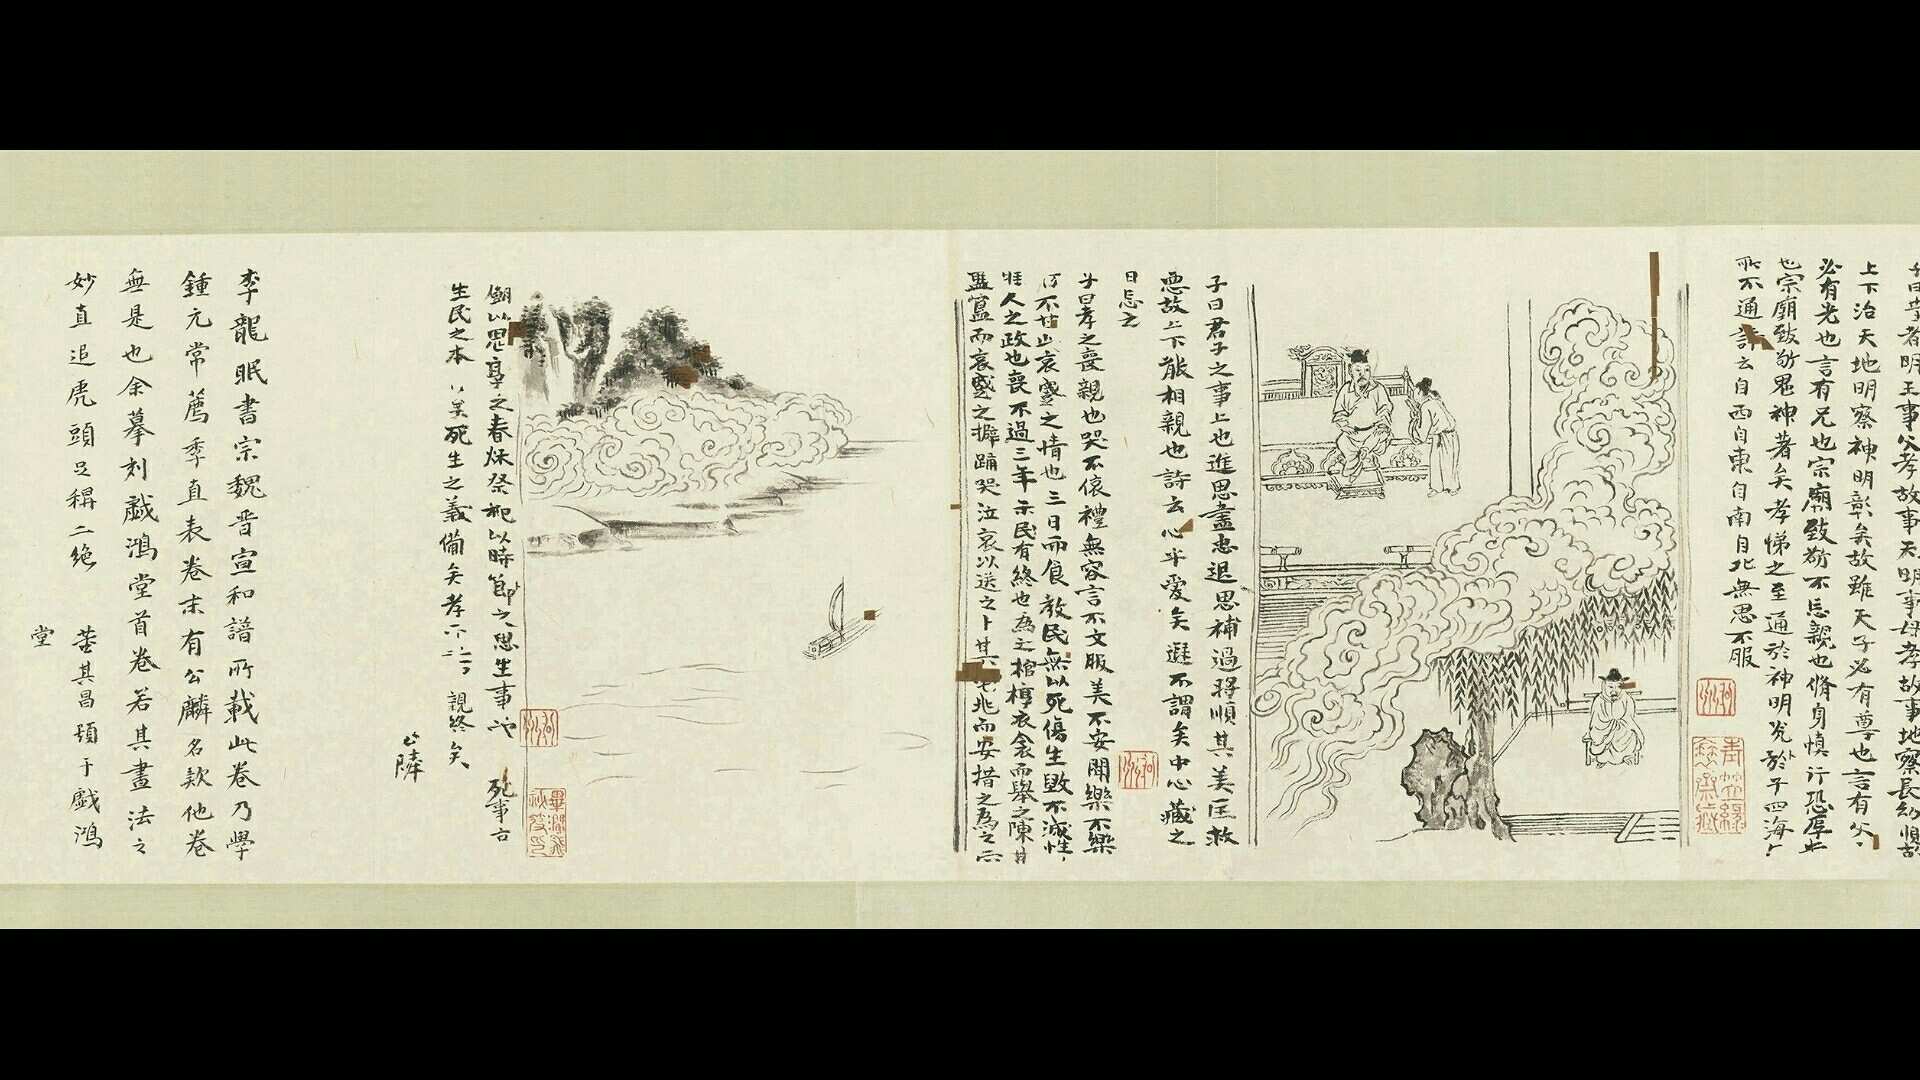 子曰昔者明王事父孝故事天明事母孝故事地察長幼順故
上下治天地明察神明彰矣故雖天子必有尊也言有父
必有先也言有兄也宗廟致敬不忘親也脩身慎行恐辱
也宗廟致敬鬼神著矣孝悌之至通於神明光於四海
所不通詩云自西自東自南自北無思不服
子曰君子之事上也進思盡忠退思補過將順其美匡救
惡故上下能相親也詩云心乎愛矣遐不謂矣中心藏之
日忘之
子曰孝之喪親也哭不偯禮無容言不文服美不安聞樂不樂
不甘此哀慼之情也三日而食教民無以死傷生毀不滅性
人之政也喪不過三年示民有終也為之棺槨衣衾而舉之陳其
簠簋而哀慼之擗踊哭泣哀以送之卜其兆而安措之為之宗
廟以思享之春秋祭祀以時節之思生事死事
生民之本矣死生之義備矣孝親終矣
公麟
李龍眠書宗魏晉宣和譜所載此卷乃學
鍾元常薦季直表卷末有公麟名款他卷
無是也余摹刻戲鴻堂首卷若其畫法之
妙直追虎頭足稱二絕 董其昌題于戲鴻
堂